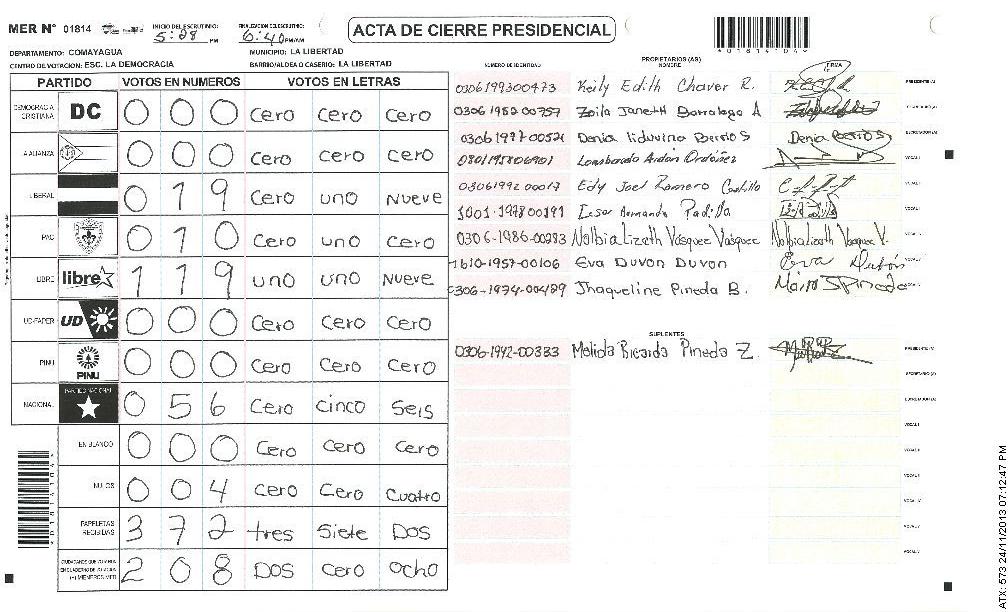 MER Nº 01814
INICIO DEL ESCRUTINIO: 5:28 PM
FINALIZACION DEL ESCRUTINIO: 6:40 PM/AM
ACTA DE CIERRE PRESIDENCIAL
DEPARTAMENTO: COMAYAGUA
MUNICIPIO: LA LIBERTAD
CENTRO DE VOTACION: ESC. LA DEMOCRACIA
BARRIO/ALDEA O CASERIO: LA LIBERTAD
PARTIDO VOTOS EN NUMEROS VOTOS EN LETRAS
DEMOCRACIA CRISTIANA DC 0 0 0 Cero Cero Cero
ALIANZA 0 0 0 Cero Cero Cero
LIBERAL 0 1 9 Cero uno Nueve
PAC 0 1 0 Cero uno Cero
LIBRE libre 1 1 9 uno uno Nueve
UD-FAPER UD 0 0 0 Cero Cero Cero
PINU PINU 0 0 0 Cero Cero Cero
NACIONAL PARTIDO NACIONAL 0 5 6 Cero cinco Seis
EN BLANCO 0 0 0 Cero Cero Cero
NULOS 0 0 4 Cero Cero Cuatro
PAPELETAS RECIBIDAS 3 7 2 tres Siete DOS
2 0 8 DOS cero ocho
NUMERO DE IDENTIDAD
PROPIETARIOS (AS)
NOMBRE
FIRMA
0306199300473 Keily Edith Chaver R. PRESIDENTE (A)
0306 1952 00757 Zoila Janeth Barralaga A
0306 1977 00521 Denia Liduvina Berrio S Denia Berrio S
0801195806901 Lombardo Ardón Ordóñez
0306 1992 00017 Edy Joel Romero Castillo
1001-1978 00191 Cesar Armando Padilla
0306-1986-00283 Nolbia Lizeth Vásquez Vásquez Nolbia Lizeth Vasquez V.
1610-1957-00106 Eva Duvon Duvon Eva Dubón
0306-1974-00489 Jhaqueline Pineda B.
SUPLENTES
0306-1992-00383 Melida Ricarda Pineda Z. PRESIDENTE (A)
SECRETARIO (A)
ESCRUTADOR (A)
VOCAL I
ATX: 573 24/11/2013 07:12:47 PM